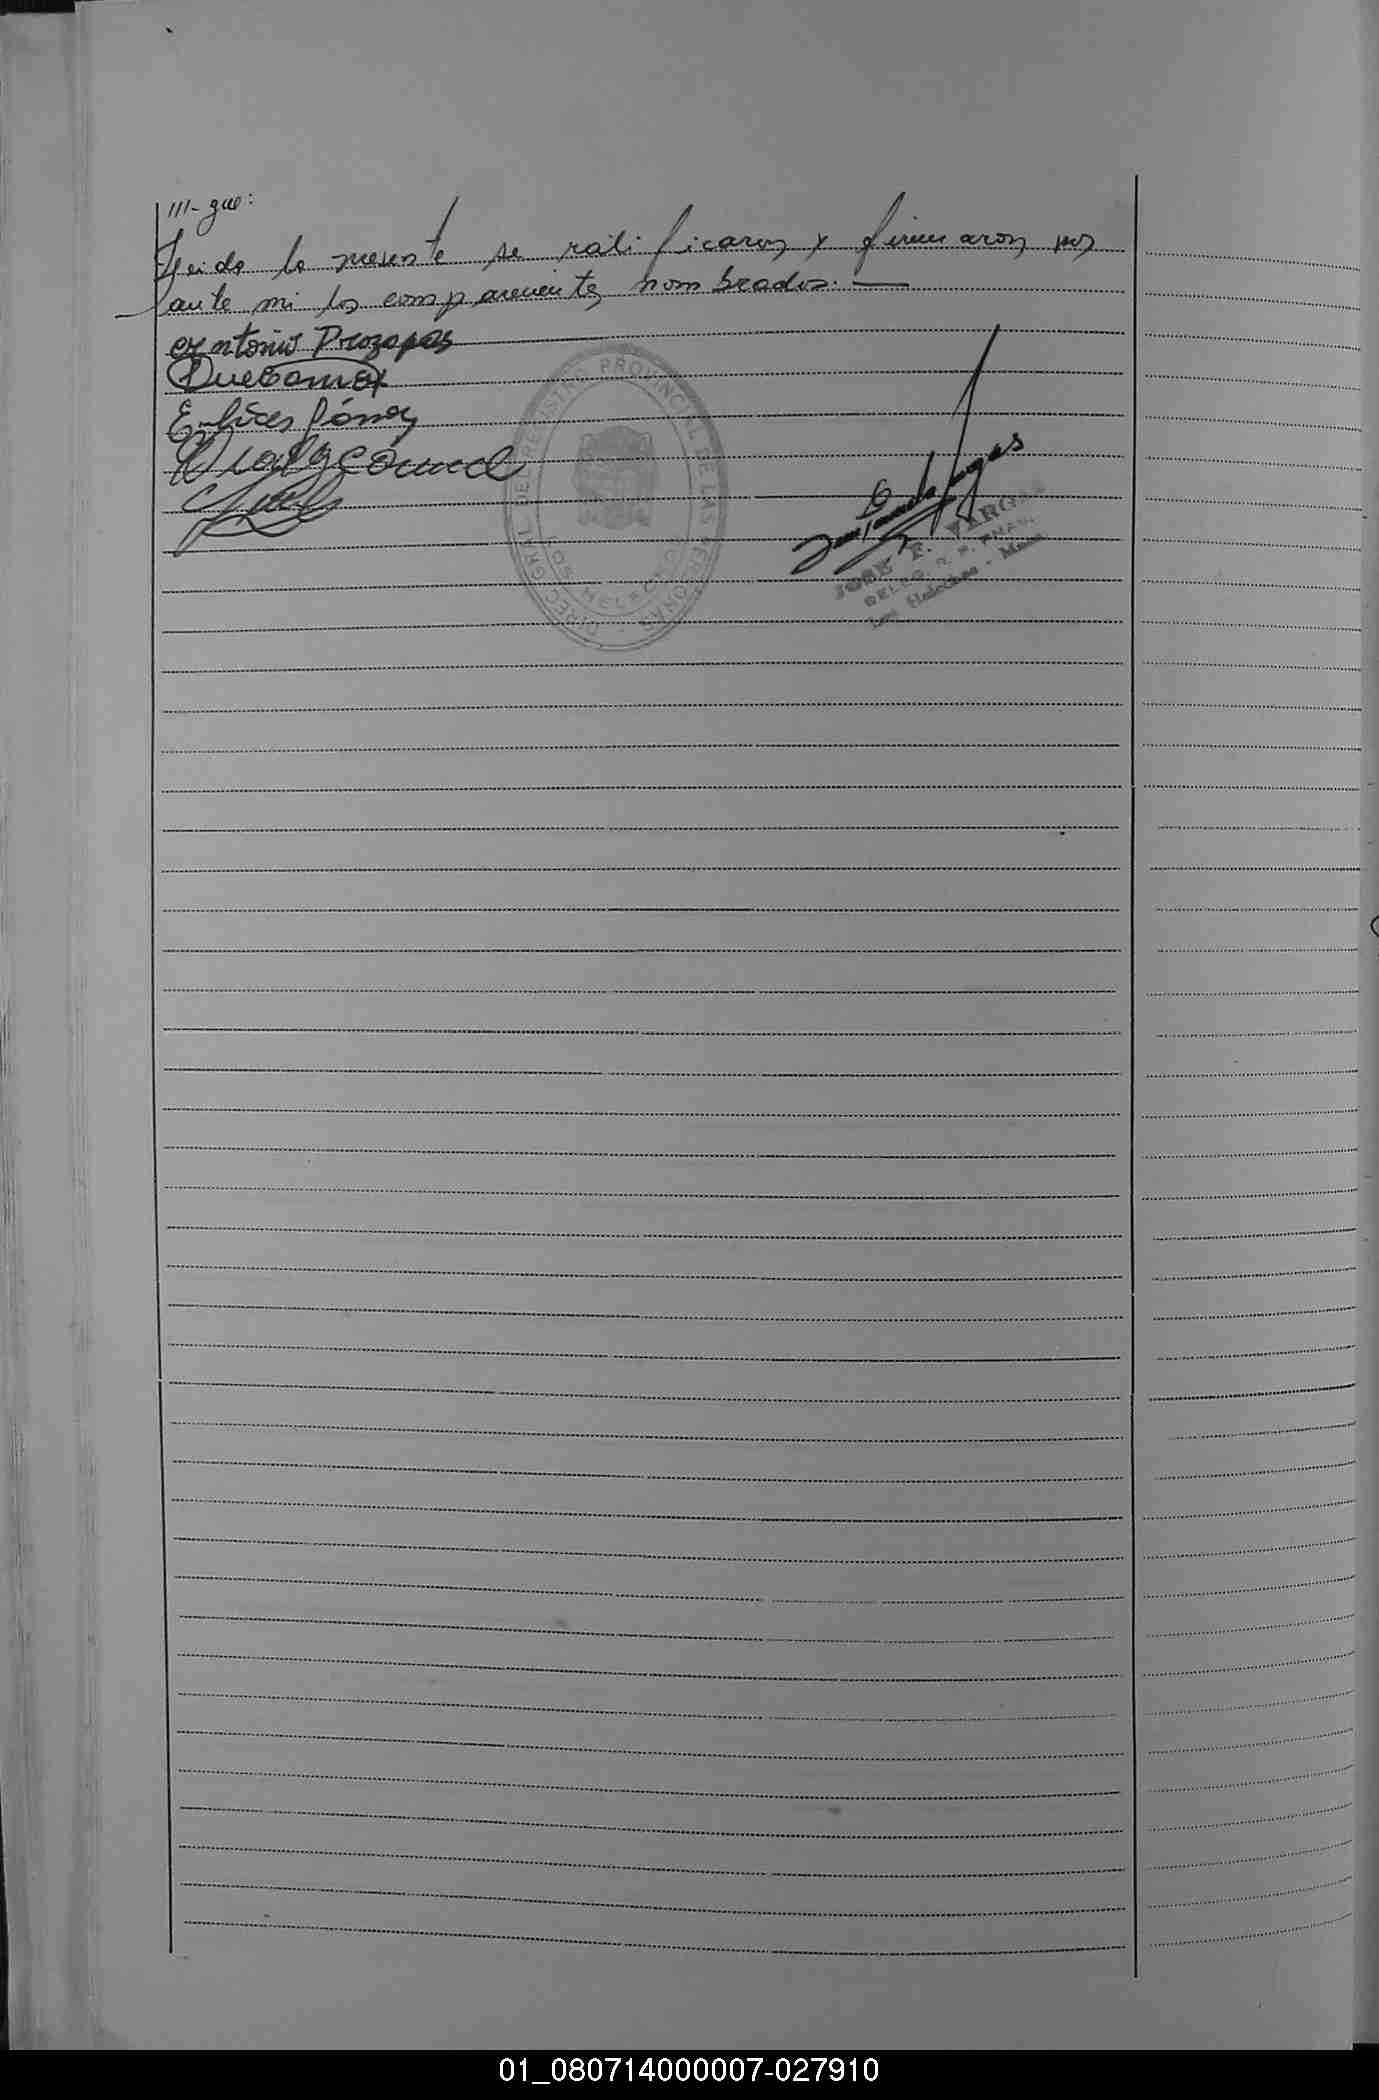 ///-gue:
Leida la presente se ratificaron y firmaron por
ante mi los comparecientes nombrados.
Antonio Prozapas
DIREC. GRAL. DE REGISTRO PROVINCIAL DE LAS PERSONAS
LOS HELECHOS
JOSE F. VARGAS
DELEG. R. P.
Los Helechos - Mnes
01_080714000007-027910